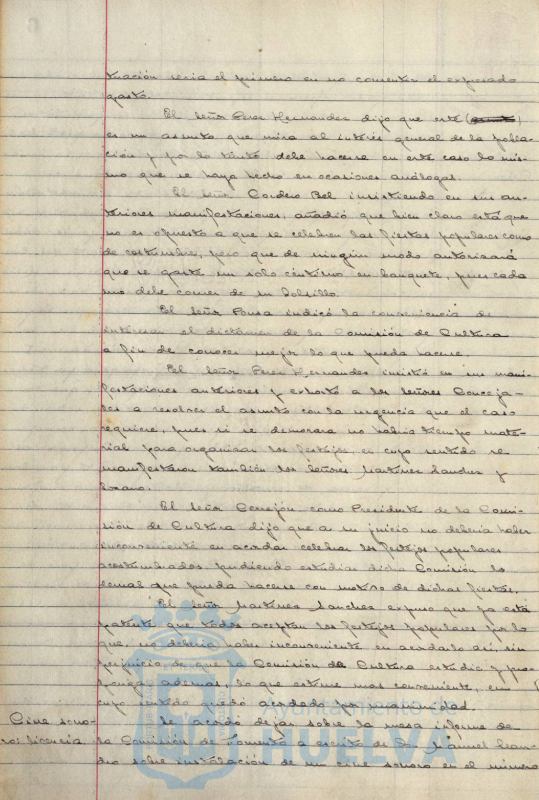 tuación seria el primero en no consentir el expresado
gasto.
El Señor Perez Hernandez dijo que este
es un asunto que mira al interés general de la pobla-
ción y por lo tanto debe hacerse en este caso lo mis-
mo que se haya hecho en ocasiones análogas.
El Señor Cordero Bel insistiendo en sus an-
teriores manifestaciones, añadió que bien claro está que
no es opuesto a que se celebren las fiestas populares como
de costumbre, pero que de ningún modo autorizará
que se gaste un solo céntimo en banquete, pues cada
uno debe comer de su bolsillo.
El Señor Ponsa indicó la conveniencia de
interesar el dictámen de la Comisión de Cultura
a fin de conocer mejor lo que pueda hacerse.
El Señor Perez Hernandez insistió en sus mani-
festaciones anteriores y exhortó a los señores Conceja-
les a resolver el asunto con la urgencia que el caso
requiere, pues si se demorara no habria tiempo mate-
rial para organizar los festejos, en cuyo sentido se
manifestaron también los Señores Martinez Sanchez y
Lozano.
El Señor Cerejón como Presidente de la Comi-
sión de Cultura dijo que a su juicio no deberia haber
inconveniente en acordar celebrar los festejos populares
acostumbrados pudiendo estudiar dicha Comisión lo
demas que pueda hacerse con motivo de dichas fiestas.
El Señor Martinez Sanchez expuso que ya está
patente que todos aceptan los festejos populares por lo
que, no deberia haber inconveniente en acordarlo asi, sin
perjuicio de que la Comisión de Cultura estudie y pro-
ponga ademas, lo que estime mas conveniente, en
cuyo sentido quedó acordado por unanimidad.
Cine sono- Se acordó dejar sobre la mesa informe de
ro: licencia. la Comisión de Fomento a escrito de Don Manuel
dro sobre instalación de un cine sonoro en el número
HUELVA